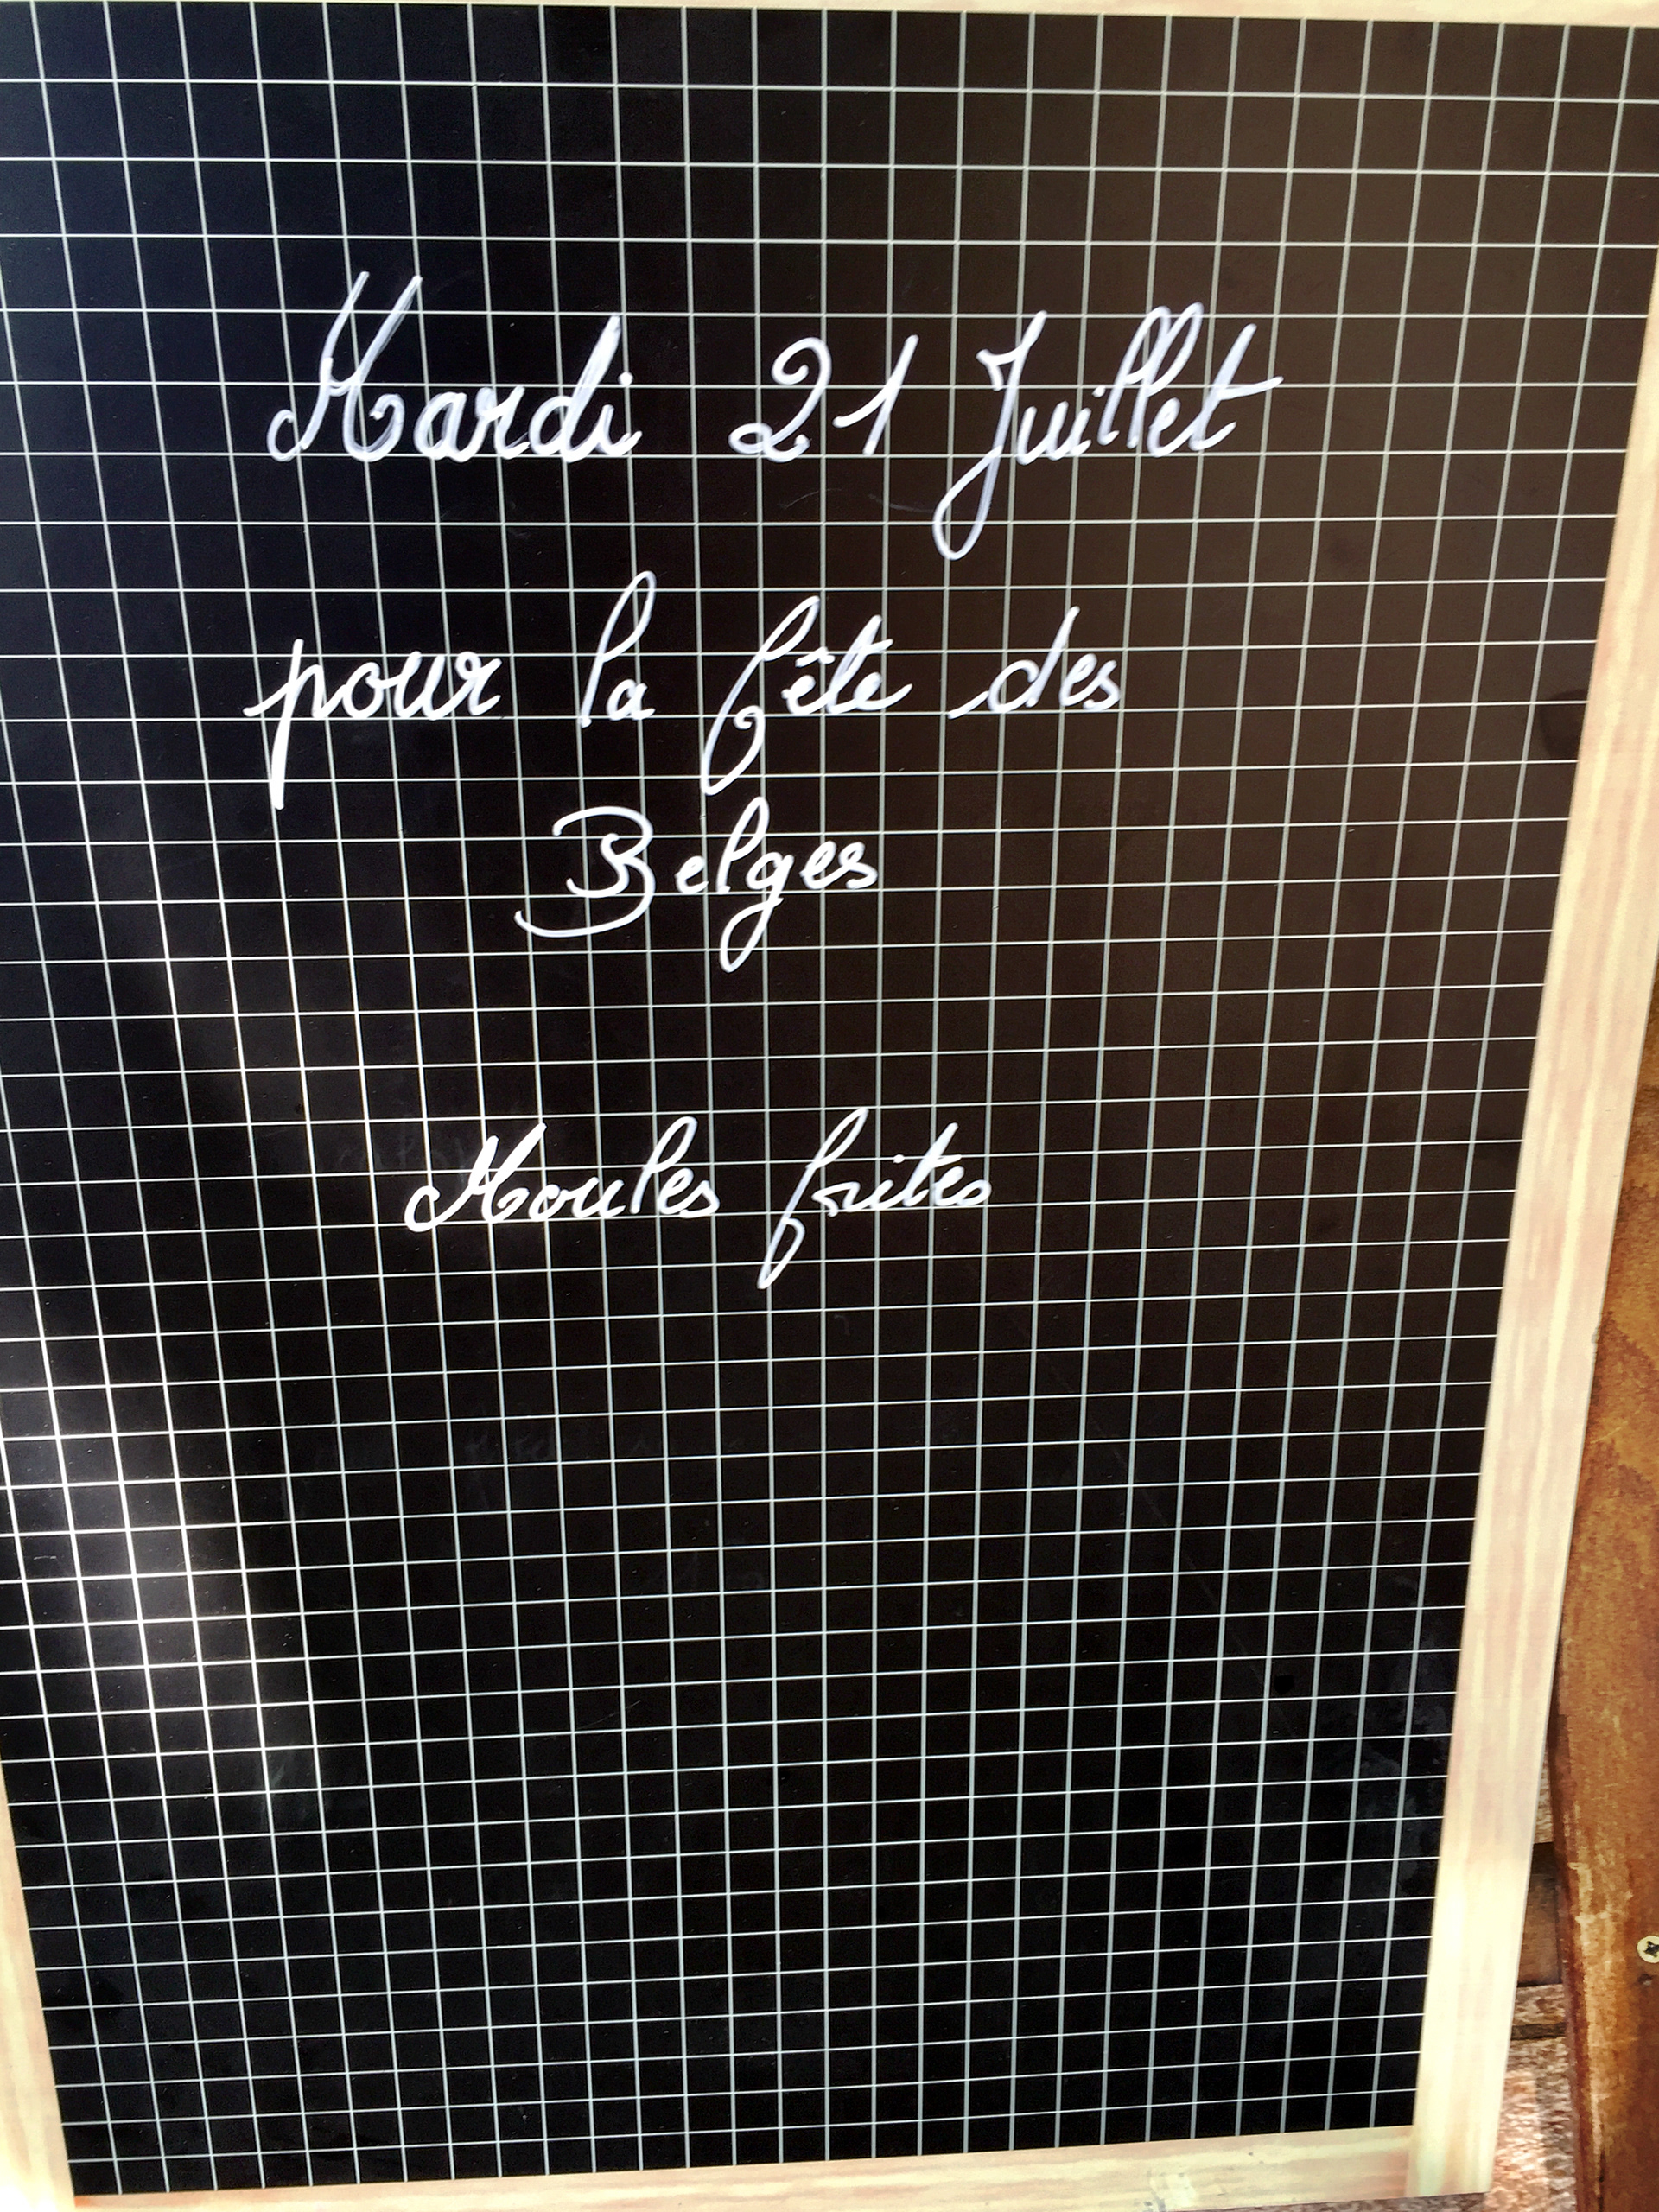 Mardi 21 Juillet
pour la fête des
Belges
Moules frites